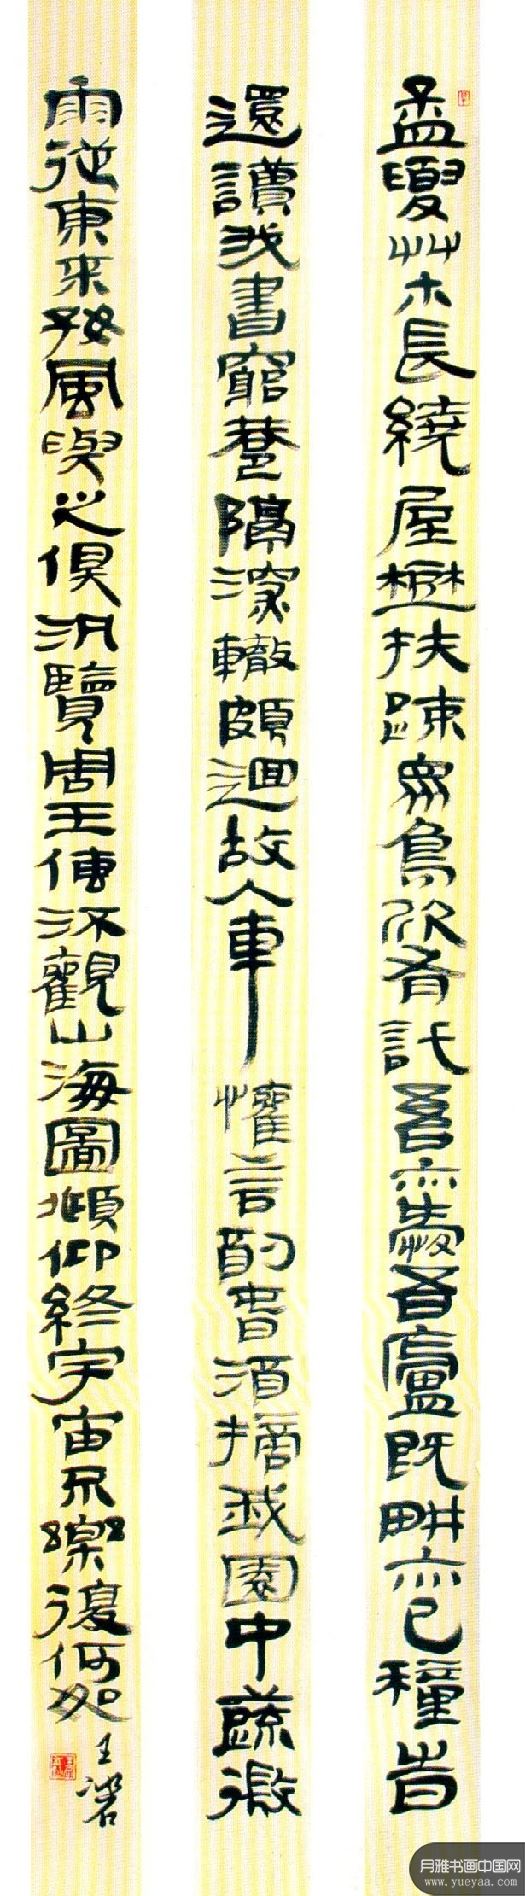 孟夏艸木長繞屋樹扶疎眾鳥欣有託吾亦愛吾廬既畊亦已種旹
還讀我書窮巷隔深轍頗迴故人車懽言酌春酒摘我園中蔬微
雨從東來好風與之俱汎覽周王傳流觀山海圖頫仰終宇宙不樂復何如
王
月雅书画中国网
www.yueyaa.com